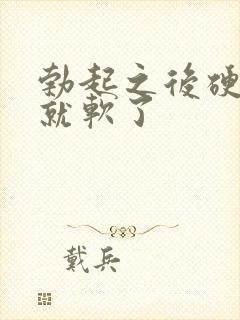 勃起之後硬
就軟了
戴兵